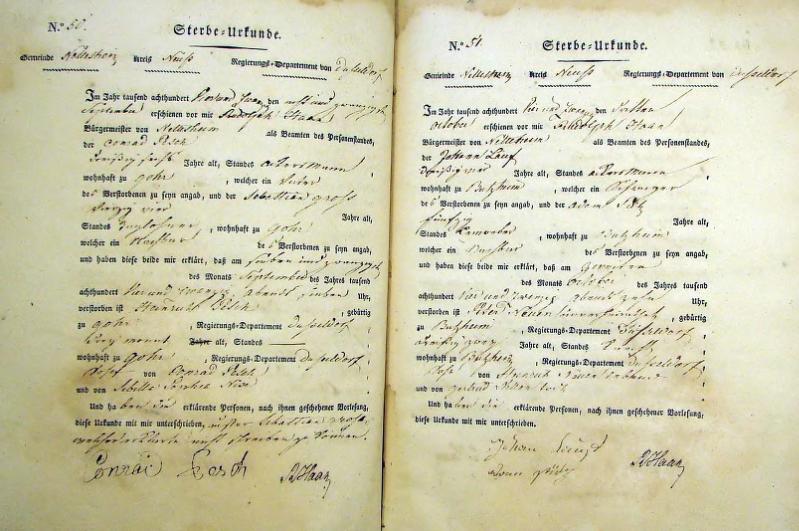 N.º 50.
Sterbe-Urkunde.
Gemeinde Nettesheim Kreis Neuss Regierungs-Departement von Dusseldorf
Im Jahr tausend achthundert vier und zwanzig den acht und zwanzigsten
September erschienen vor mir Rudolph Haan
Bürgermeister von Nettesheim als Beamten des Personenstandes,
der Conrad Pesch
dreißig sechs Jahre alt, Standes Ackersmann
wohnhaft zu Gohr, welcher ein Vater
des Verstorbenen zu seyn angab, und der Sebastian Gross
vierzig vier Jahre alt,
Standes Taglöhner, wohnhaft zu Gohr
welcher ein Nachbar des Verstorbenen zu seyn angab,
und haben diese beide mir erklärt, daß am sieben und zwanzigsten
des Monats September des Jahres tausend
achthundert vier und zwanzig abends sieben Uhr,
verstorben ist Heinrich Pesch, gebürtig
zu Gohr, Regierungs-Departement Dusseldorf
Jahre alt, Standes
wohnhaft zu Gohr, Regierungs-Departement Dusseldorf,
Sohn von Conrad Pesch
und von Sibilla
Und haben die erklärende Personen, nach ihnen geschehener Vorlesung,
diese Urkunde mit mir unterschrieben, Sebastian Gross
welcher erklärte nicht schreiben zu können.
Conrad Pesch RHaan
N.º 51.
Sterbe-Urkunde.
Gemeinde Nettesheim Kreis Neuss Regierungs-Departement von Dusseldorf
Im Jahr tausend achthundert vier und zwanzig den
October erschienen vor mir Rudolph Haan
Bürgermeister von Nettesheim als Beamten des Personenstandes,
der Johann
dreißig vier Jahre alt, Standes Ackersmann
wohnhaft zu Butzheim, welcher ein
des Verstorbenen zu seyn angab, und der Adam
fünfzig Jahre alt,
Standes, wohnhaft zu Butzheim
welcher ein Nachbar des Verstorbenen zu seyn angab,
und haben diese beide mir erklärt, daß am
des Monats October des Jahres tausend
achthundert vier und zwanzig abends zehn Uhr,
verstorben ist Peter Neuen, gebürtig
zu Butzheim, Regierungs-Departement Dusseldorf
Jahre alt, Standes
wohnhaft zu Butzheim, Regierungs-Departement Dusseldorf,
Sohn von Heinrich Neuen
und von
Und haben die erklärende Personen, nach ihnen geschehener Vorlesung,
diese Urkunde mit mir unterschrieben.
Johann
RHaan